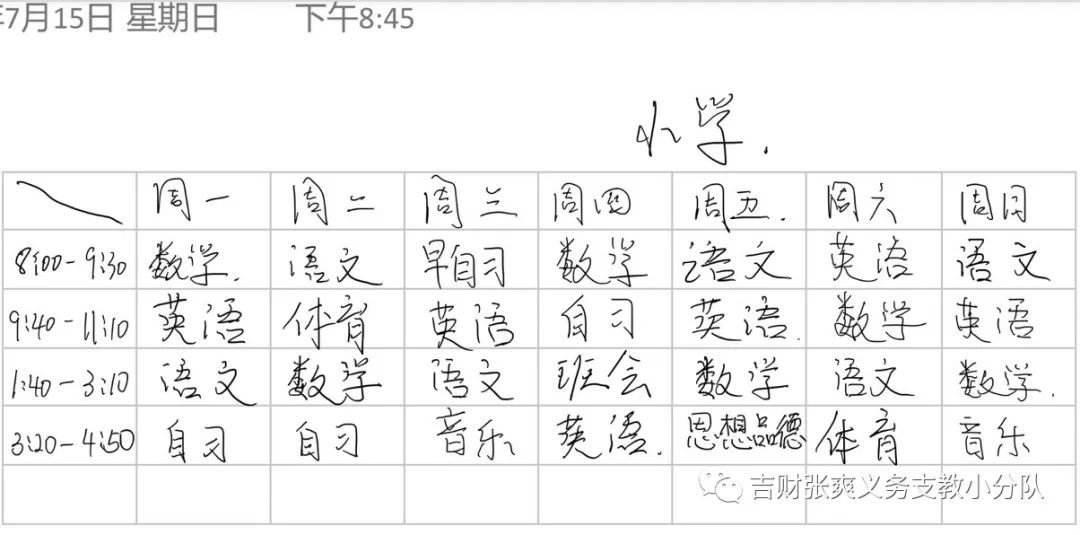 年7月15日 星期日 下午8:45
小学.
周一 周二 周三 周四 周五. 周六 周日
8:00-9:30 数学. 语文 早自习 数学 语文 英语 语文
9:40-11:10 英语 体育 英语 自习 英语. 数学 英语
1:40-3:10 语文 数学 语文 班会 数学 语文 数学.
3:20-4:50 自习 自习 音乐 英语. 思想品德 体育 音乐
吉财张爽义务支教小分队